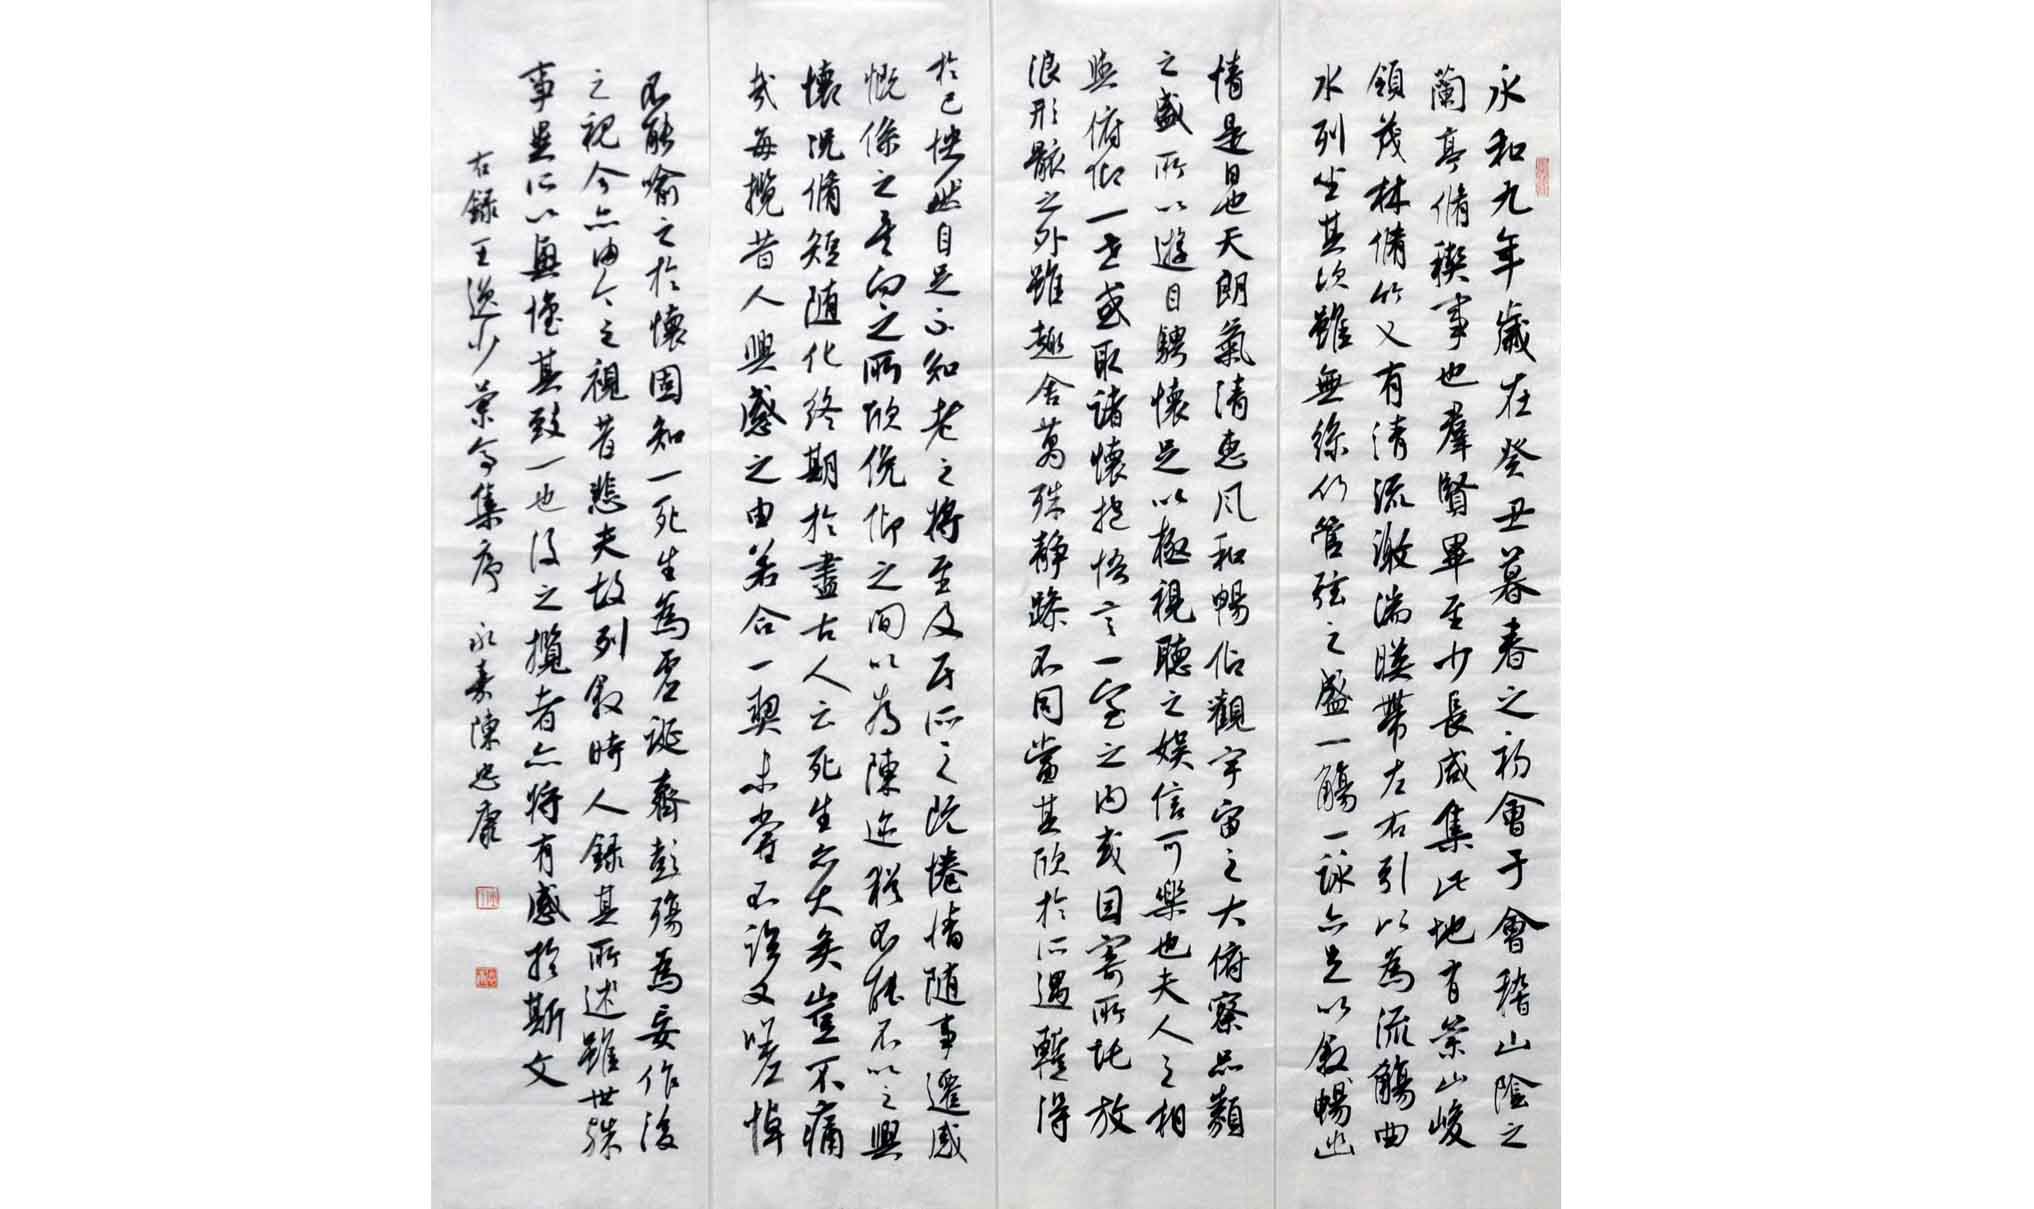 永和九年歲在癸丑暮春之初會于會稽山陰之
蘭亭脩稧事也羣賢畢至少長咸集此地有崇山峻
領茂林脩竹又有清流激湍暎帶左右引以為流觴曲
水列坐其次雖無絲竹管弦之盛一觴一詠亦足以敘暢幽
情是日也天朗氣清惠風和暢仰觀宇宙之大俯察品類
之盛所以遊目騁懷足以極視聽之娛信可樂也夫人之相
與俯仰一世或取諸懷抱悟言一室之內或因寄所託放
浪形骸之外雖趣舍萬殊靜躁不同當其欣於所遇蹔得
於己快然自足不知老之將至及其所之既惓情隨事遷感
慨係之矣向之所欣俛仰之間以為陳迹猶不能不以之興
懷況脩短隨化終期於盡古人云死生亦大矣豈不痛
哉每攬昔人興感之由若合一契未嘗不臨文嗟悼
不能喻之於懷固知一死生為虛誕齊彭殤為妄作後
之視今亦由今之視昔悲夫故列敘時人錄其所述雖世殊
事異所以興懷其致一也後之攬者亦將有感於斯文
右錄王逸少蘭亭集序 永嘉陳忠康